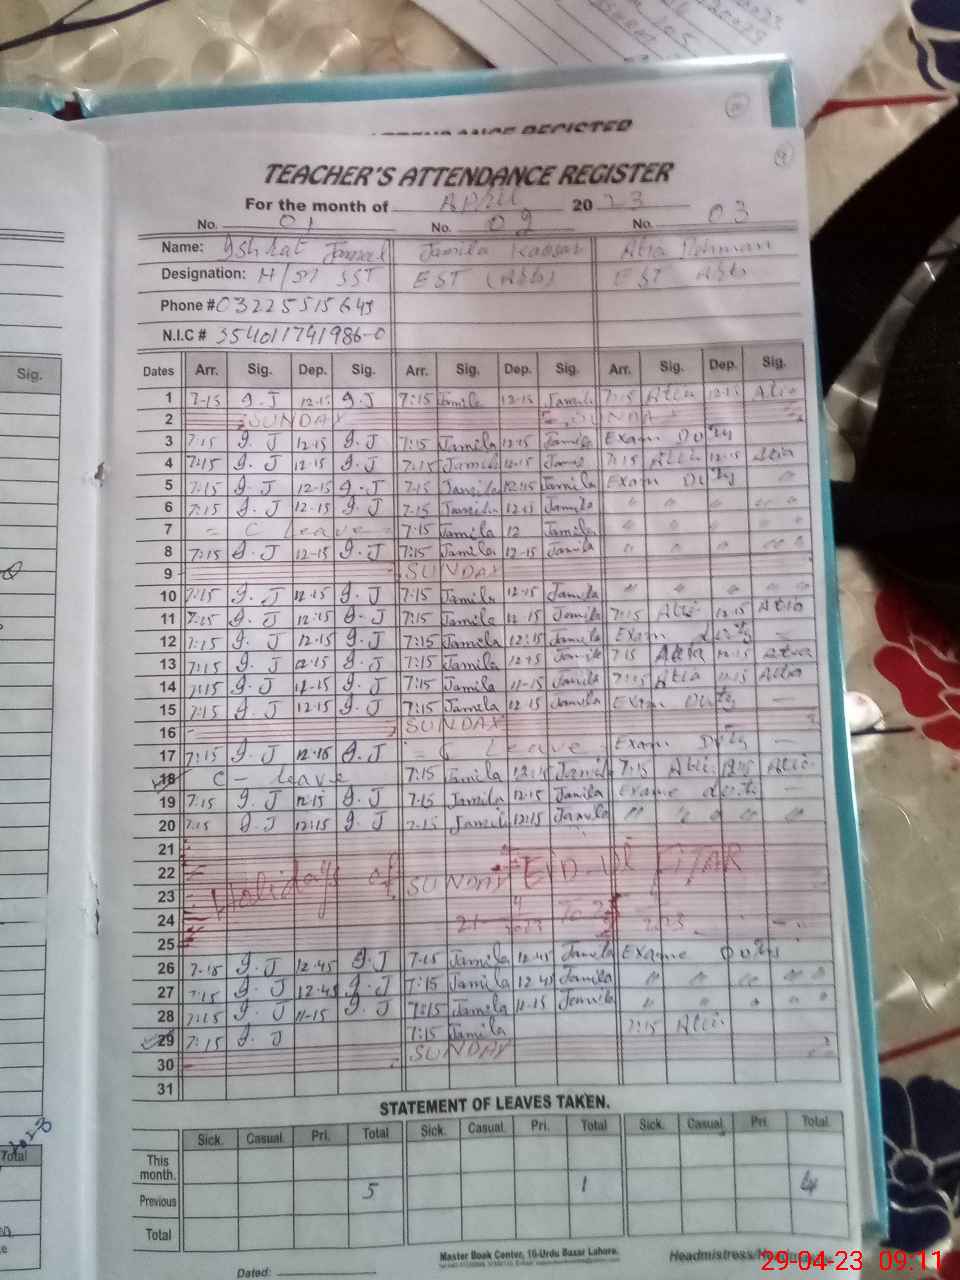 TEACHER'S ATTENDANCE REGISTER
For the month of April 2023
No. 01 No. 02 No. 03
Name: Ishrat Jamal Jamila Kausar Atia Rehman
Designation: H/M SST EST (Arb) EST Arb
Phone # 03225515645
N.I.C # 354011741986-0
Dates Arr. Sig. Dep. Sig. Arr. Sig. Dep. Sig. Arr. Sig. Dep. Sig.
1 7-15 I.J 12-15 I.J 7:15 Jamila 12-15 Jamila 7:15 Atia 12-15 Atia
2 SUNDAY SUNDAY
3 7:15 I.J 12-15 I.J 7:15 Jamila 12-15 Jamila Exam Duty
4 7:15 I.J 12-15 I.J 7:15 Jamila 12-15 Jamila 7:15 Atia 12-15 Atia
5 7:15 I.J 12-15 I.J 7-15 Jamila 12:15 Jamila Exam Duty "
6 7:15 I.J 12-15 I.J 7-15 Jamila 12:15 Jamila " " " "
7 = C Leave = 7:15 Jamila 12 Jamila " " " "
8 7:15 I.J 12-15 I.J 7:15 Jamila 12-15 Jamila " " " "
9 SUNDAY
10 7:15 I.J 12-15 I.J 7:15 Jamila 12-15 Jamila " " " "
11 7:15 I.J 12:15 I.J 7:15 Jamila 12-15 Jamila 7:15 Atia 12-15 Atia
12 7:15 I.J 12-15 I.J 7:15 Jamila 12:15 Jamila Exam duty -
13 7:15 I.J 12-15 I.J 7:15 Jamila 12-15 Jamila 7:15 Atia 12-15 Atia
14 7:15 I.J 11-15 I.J 7:15 Jamila 11-15 Jamila 7:15 Atia 11-15 Atia
15 7:15 I.J 12-15 I.J 7:15 Jamila 12-15 Jamila Exam Duty -
16 SUNDAY
17 7:15 I.J 12-15 I.J = C Leave - Exam Duty -
18 C - leave 7:15 Jamila 12:15 Jamila 7:15 Atia 12:15 Atia
19 7:15 I.J 12-15 I.J 7-15 Jamila 12-15 Jamila Exame duty -
20 7:15 I.J 12:15 I.J 7-15 Jamila 12:15 Jamila " " " "
21
22 Holidays of EID-Ul FITAR
23 SUNDAY
24
25
26 7-15 I.J 12-45 I.J 7-15 Jamila 12-45 Jamila Exame Duty
27 7:15 I.J 12-45 I.J 7:15 Jamila 12-45 Jamila " " " "
28 7:15 I.J 11-15 I.J 7:15 Jamila 11-15 Jamila " " " "
29 7:15 I.J 7:15 Jamila 7:15 Atia
30 SUNDAY
31
STATEMENT OF LEAVES TAKEN.
Sick. Casual. Pri. Total Sick. Casual. Pri. Total Sick. Casual. Pri. Total
This month.
Previous 5 1 4
Total
Master Book Center, 16-Urdu Bazar Lahore.
Dated:
29-04-23 09:11